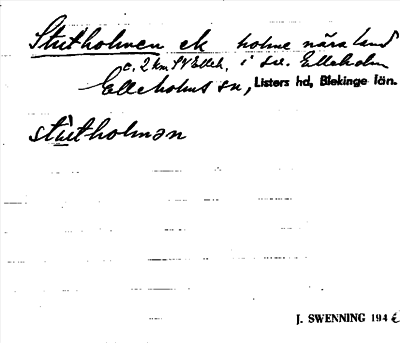 Stutholmen ek holme nära land
c. 2 km SV Elleh. i sv. Elleholm
Elleholms sn, Listers hd, Blekinge län.
stùtholmən
J. SWENNING 194